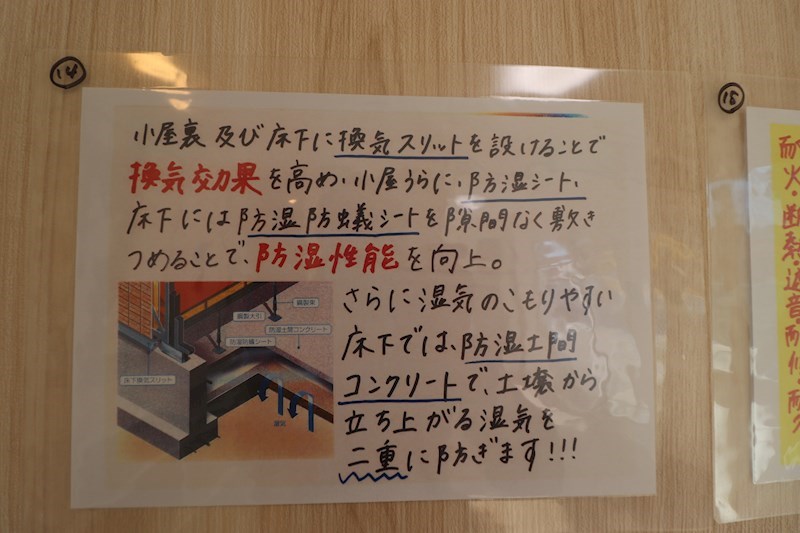 14
小屋裏及び床下に換気スリットを設けることで
換気効果を高め、小屋うらに、防湿シート、
床下には防湿防蟻シートを隙間なく敷き
つめることで、防湿性能を向上。
さらに湿気のこもりやすい
床下では、防湿土間
コンクリートで、土壌から
立ち上がる湿気を
二重に防ぎます!!!
鋼製束
鋼製大引
防湿土間コンクリート
防湿防蟻シート
床下換気スリット
湿気
15